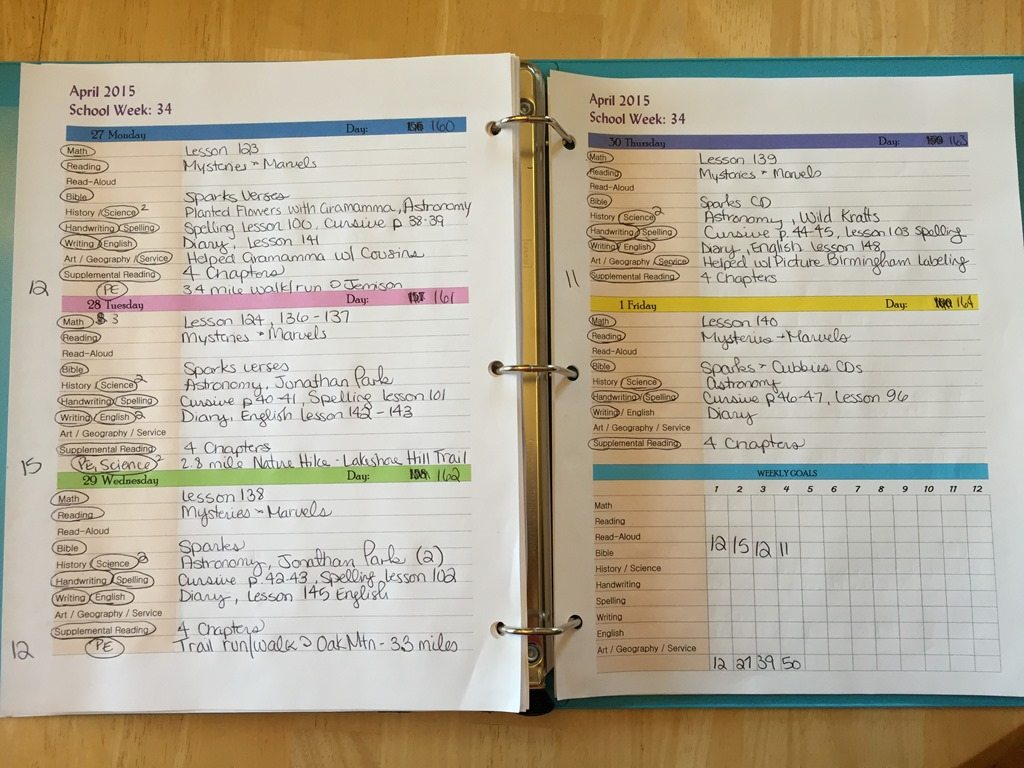 April 2015
School Week: 34
27 Monday Day: 160
Math Lesson 123
Reading Mysteries + Marvels
Read-Aloud
Bible Sparks Verses
History / Science 2 Planted Flowers with Gramamma, Astronomy
Handwriting / Spelling Spelling Lesson 100, Cursive p 38-39
Writing / English Diary, Lesson 141
Art / Geography / Service Helped Gramamma w/ Cousins
Supplemental Reading 4 Chapters
12 PE 3.4 mile walk/run @ Jemison
28 Tuesday Day: 161
Math 3 Lesson 124, 136-137
Reading Mysteries + Marvels
Read-Aloud
Bible Sparks verses
History / Science 2 Astronomy, Jonathan Park
Handwriting / Spelling Cursive p 40-41, Spelling lesson 101
Writing / English 2 Diary, English Lesson 142-143
Art / Geography / Service
Supplemental Reading 4 Chapters
15 PE, Science 2 2.8 mile Nature Hike - Lakeshore Hill Trail
29 Wednesday Day: 162
Math Lesson 138
Reading Mysteries + Marvels
Read-Aloud
Bible Sparks
History / Science 2 Astronomy, Jonathan Park (2)
Handwriting / Spelling Cursive p. 42-43, Spelling lesson 102
Writing / English Diary, Lesson 145 English
Art / Geography / Service
Supplemental Reading 4 Chapters
12 PE Trail run/walk @ Oak Mtn - 3.3 miles
April 2015
School Week: 34
30 Thursday Day: 163
Math Lesson 139
Reading Mysteries + Marvels
Read-Aloud
Bible Sparks CD
History / Science 2 Astronomy, Wild Kratts
Handwriting / Spelling Cursive p. 44-45, Lesson 103 Spelling
Writing / English Diary, English Lesson 148
Art / Geography / Service Helped w/ Picture Birmingham Labeling
11 Supplemental Reading 4 Chapters
1 Friday Day: 164
Math Lesson 140
Reading Mysteries + Marvels
Read-Aloud
Bible Sparks + Cubbies CDs
History / Science Astronomy
Handwriting / Spelling Cursive p 46-47, Lesson 96
Writing / English Diary
Art / Geography / Service
Supplemental Reading 4 Chapters
WEEKLY GOALS
1 2 3 4 5 6 7 8 9 10 11 12
Math
Reading
Read-Aloud
12 15 12 11
Bible
History / Science
Handwriting
Spelling
Writing
English
Art / Geography / Service
12 27 39 50